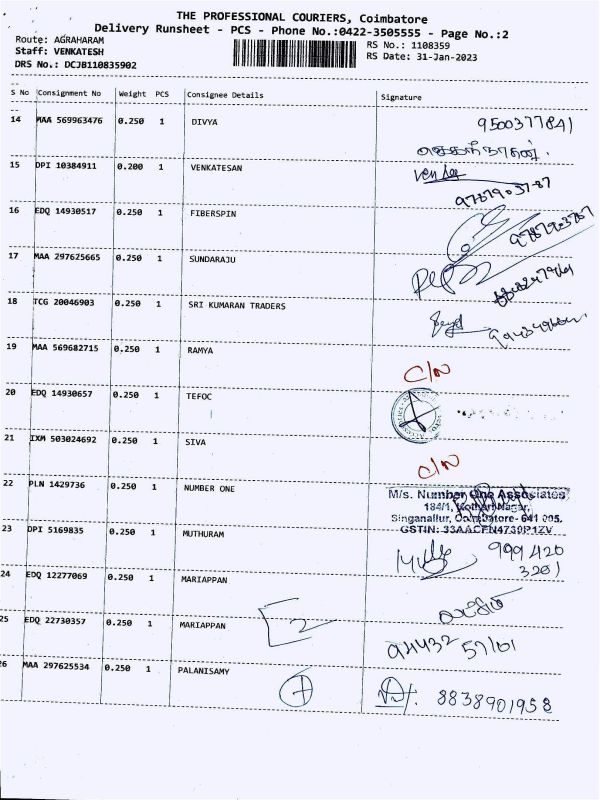 THE PROFESSIONAL COURIERS, Coimbatore
Delivery Runsheet - PCS - Phone No.:0422-3505555 - Page No.:2
Route: AGRAHARAM
Staff: VENKATESH
DRS No.: DCJB110835902
RS No.: 1108359
RS Date: 31-Jan-2023
S No Consignment No Weight PCS Consignee Details Signature
14 MAA 569963476 0.250 1 DIVYA 9500377841
15 DPI 10384911 0.200 1 VENKATESAN
16 EDQ 14930517 0.250 1 FIBERSPIN
17 MAA 297625665 0.250 1 SUNDARAJU
18 TCG 20046903 0.250 1 SRI KUMARAN TRADERS
19 MAA 569682715 0.250 1 RAMYA C/N
20 EDQ 14930657 0.250 1 TEFOC
21 IXM 503024692 0.250 1 SIVA C/N
22 PLN 1429736 0.250 1 NUMBER ONE
M/s. Number One Associates
184/1, Kothari Nagar,
Singanallur, Coimbatore- 641 005.
GSTIN: 33AACFN4730P1ZV
23 DPI 5169835 0.250 1 MUTHURAM 999420
3201
24 EDQ 12277069 0.250 1 MARIAPPAN
25 EDQ 22730357 0.250 1 MARIAPPAN 2
26 MAA 297625534 0.250 1 PALANISAMY 8838901958